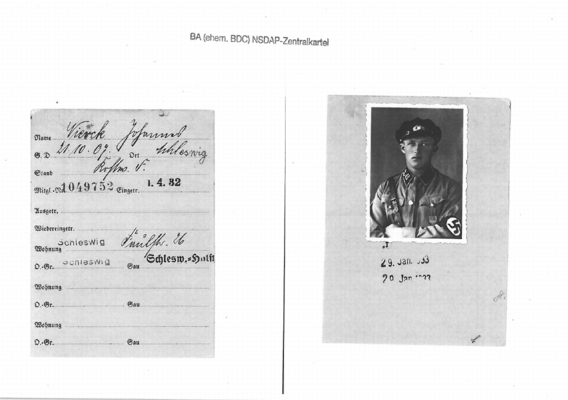 BA (ehem. BDC) NSDAP-Zentralkartei
Name Vierck Johannes
G. D. 21. 10. 07. Ort Schleswig
Stand
Mitgl.-Nr. 1049752 Eingetr. 1. 4. 32
Ausgetr.
Wiedereingetr.
Wohnung Schleswig
O.-Gr. Schleswig Gau Schlesw.-Holst
Wohnung
O.-Gr. Gau
Wohnung
O.-Gr. Gau
29. Jan.
20 Jan